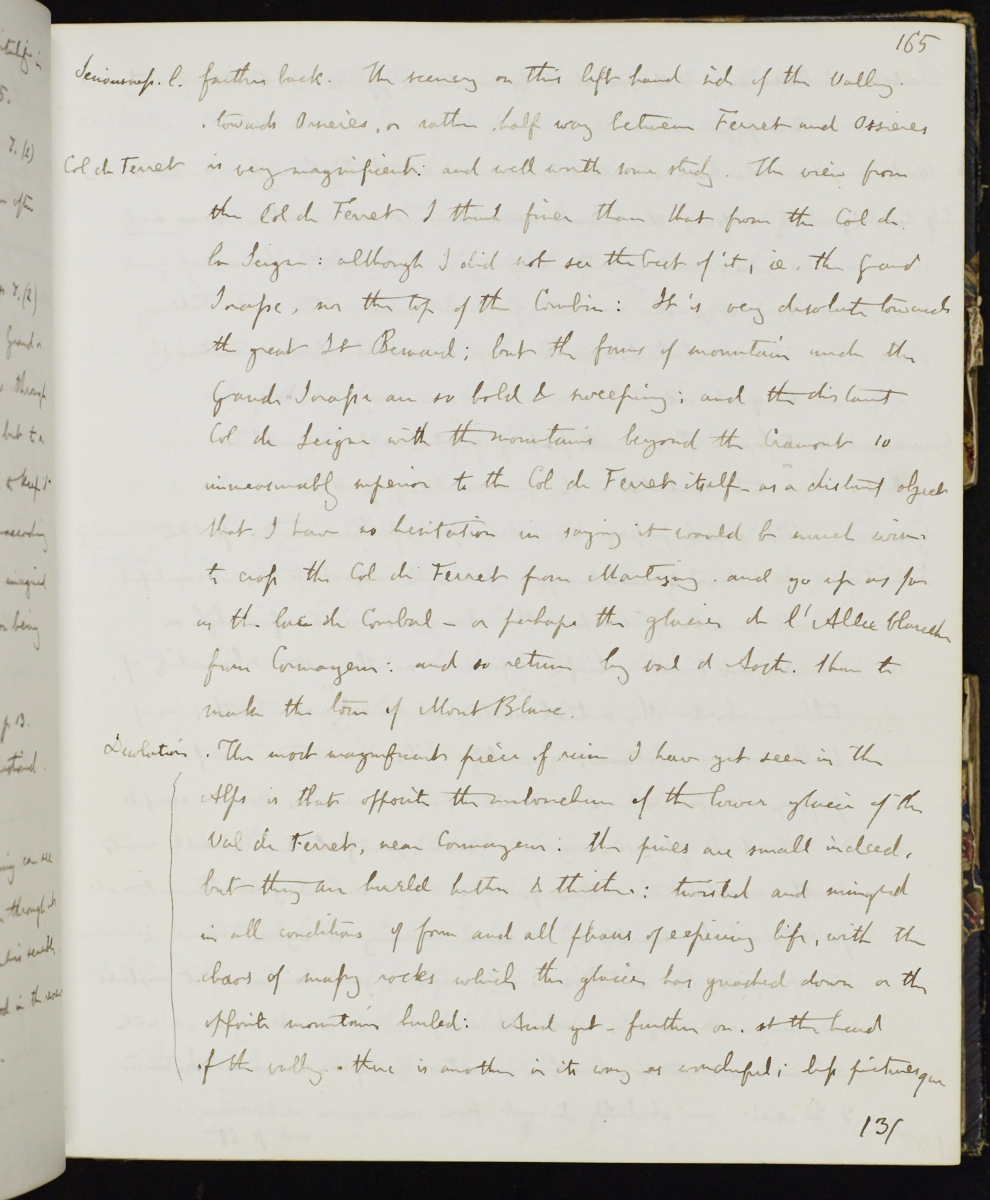 165
farther back. The scenery on this left hand side of the Valley.
. towards Orsieres, or rather, half way between Ferret and Orsieres
Col de Ferret is very magnificent: and well worth some study. The view from
the Col de Ferret I think finer than that from the Col de
la Seigne: although I did not see the best of it, ie. the Grand
Jorasse, nor the top of the Combin: It is very desolate towards
the great St Bernard; but the forms of mountain under the
Grande Jorasse are so bold & sweeping; and the distant
Col de Seigne with the mountains beyond the Cramont so
immeasurably superior to the Col de Ferret itself as a distant object
that I have no hesitation in saying it would be much wiser
to cross the Col de Ferret from Martigny. and go up as far
as the lac de Combal - or perhaps the glacier de l'Allee blanche
from Cormayeur: and so return by val d'Aost. than to
make the tour of Mont Blanc.
Desolation. The most magnificent piece of ruin I have yet seen in the
Alps is that opposite the embouchure of the lower glacier of the
Val de Ferret, near Cormayeur: the pines are small indeed,
but they are hurled hither & thither: twisted and mingled
in all conditions of form and all phases of expiring life, with the
chaos of massy rocks which the glacier has gnashed down or the
opposite mountain hurled: And yet - farther on. at the head
of the valley. there is another in its way as wonderful; less picturesque